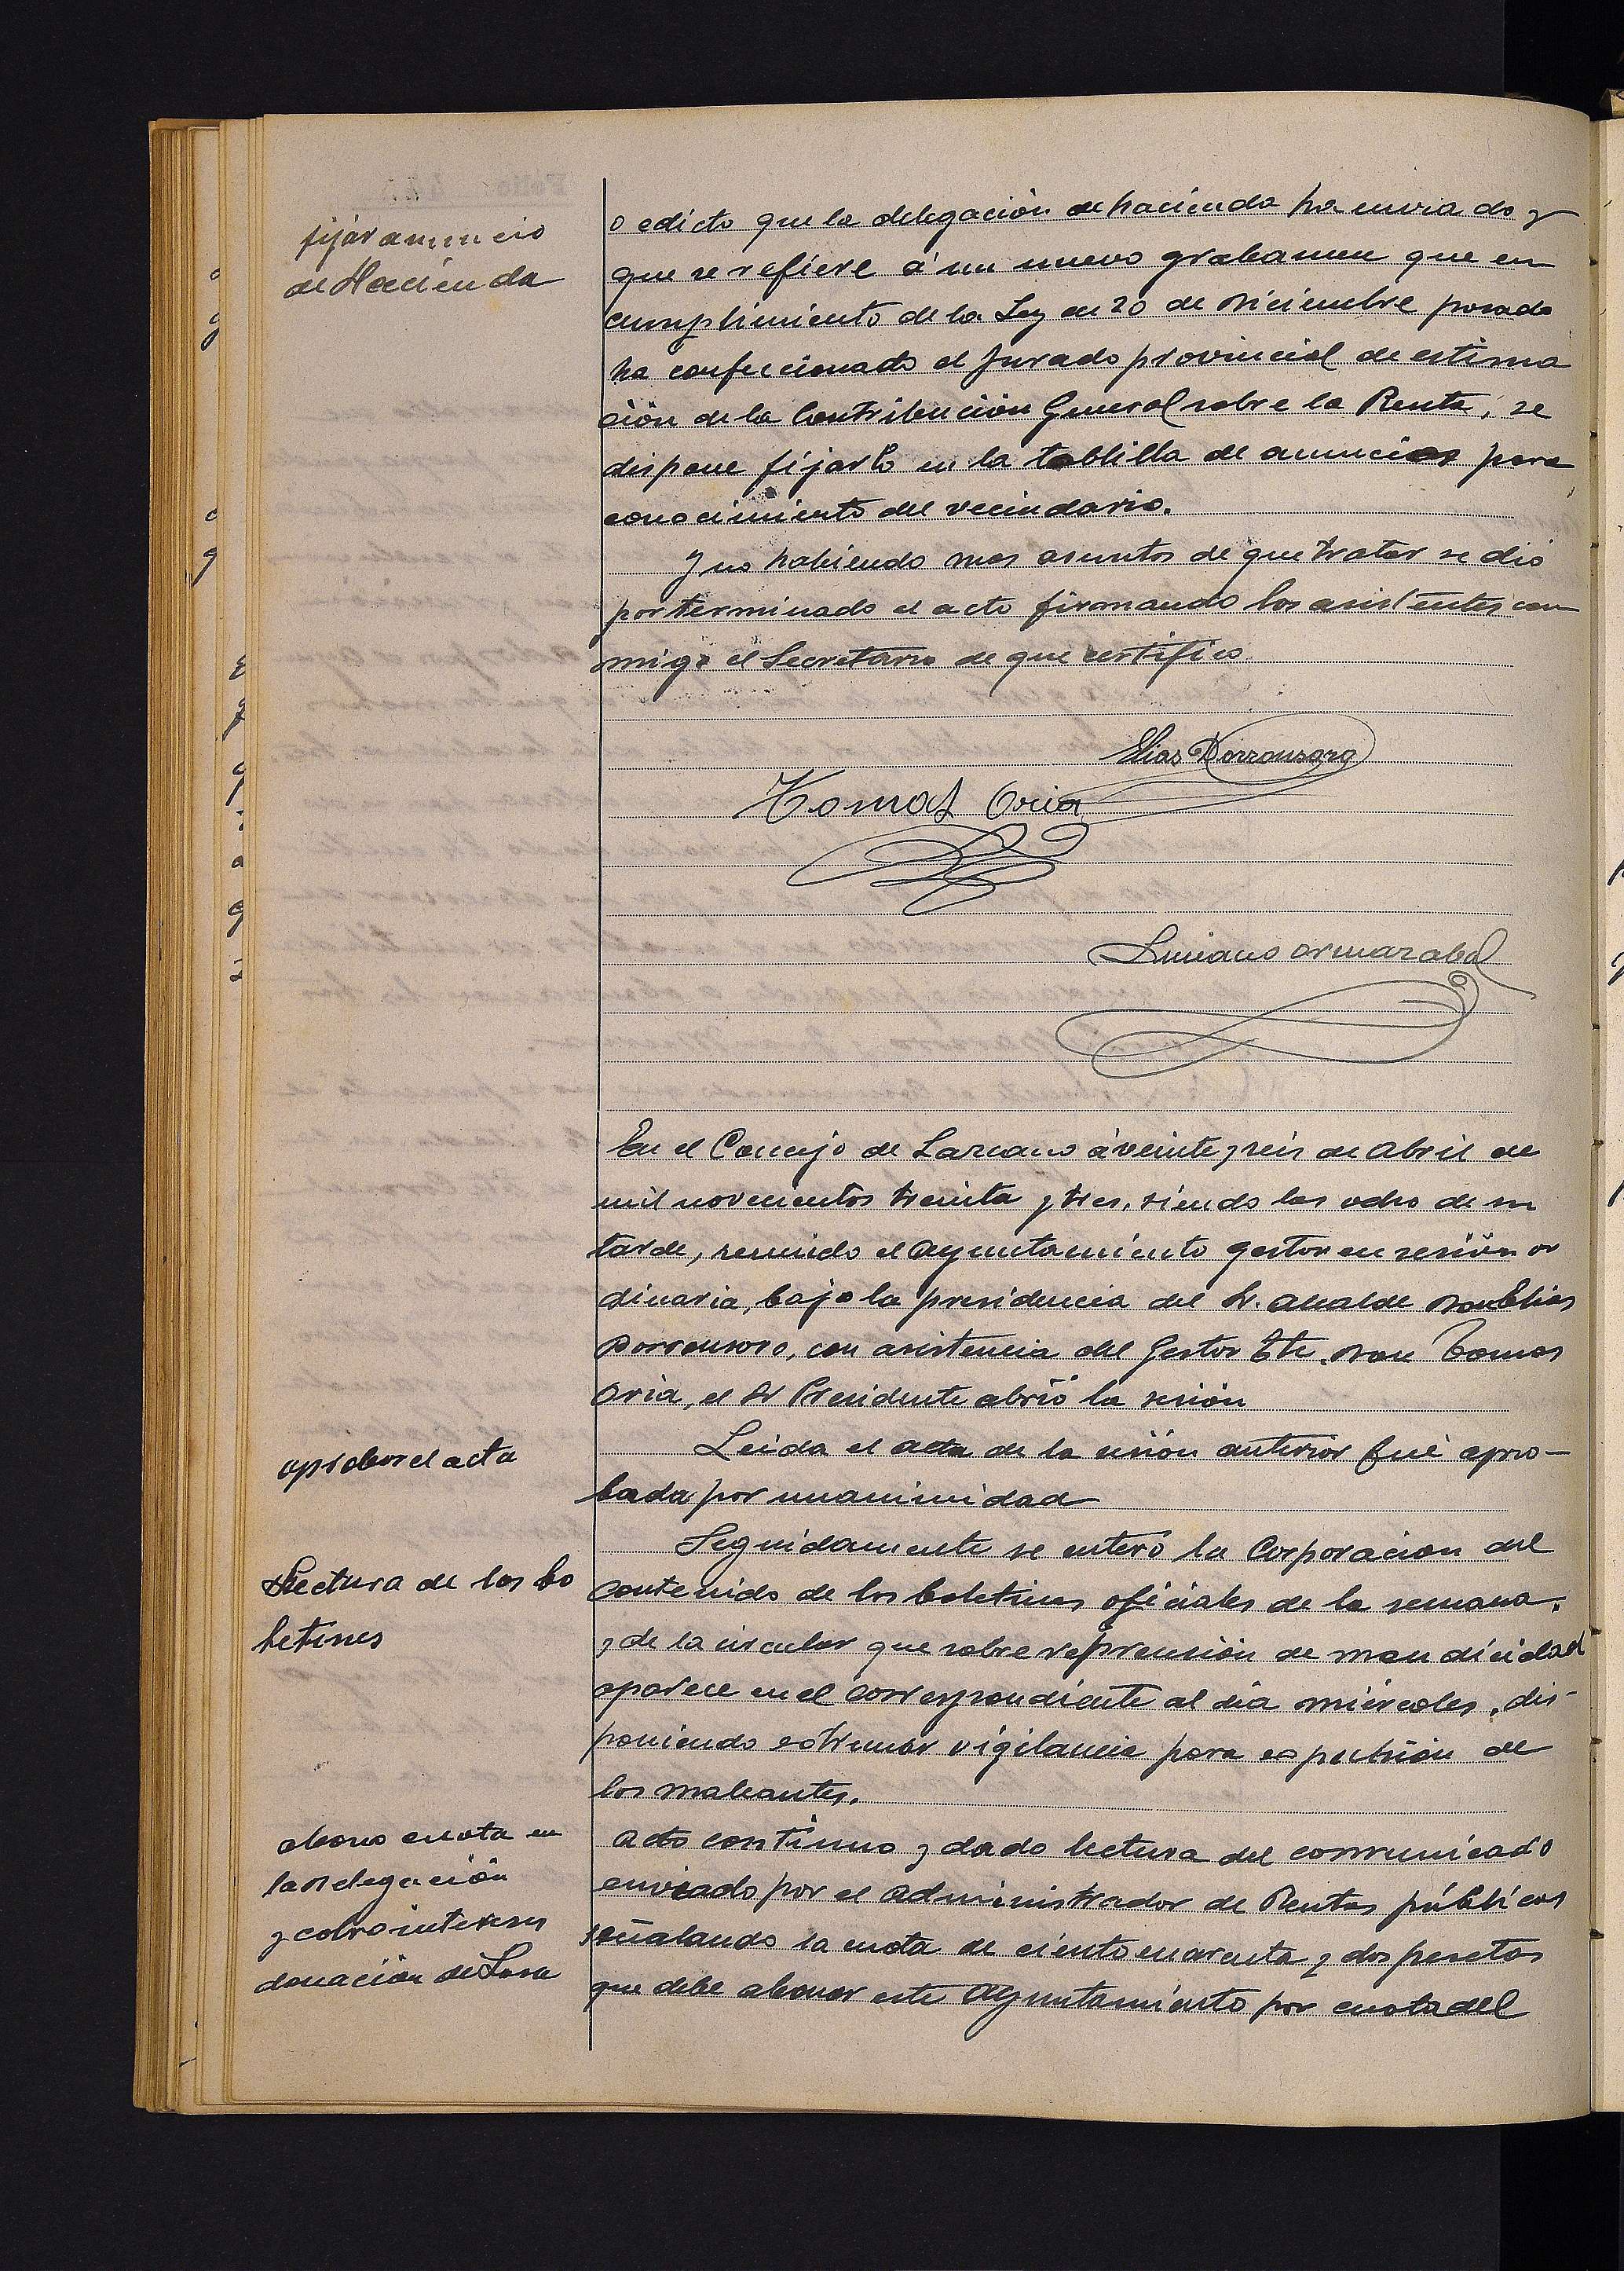 fijar anuncio
de Hacienda
o edicto que la delegación de hacienda ha enviado y
que se refiere á un nuevo grabamen que en
cumplimiento de la Ley de 20 de Diciembre pasado
ha confeccionado el Jurado provincial de estima
ción de la Contribución General sobre la Renta, se
dispone fijarlo en la tablilla de anuncios para
conocimiento del vecindario.
Y no habiendo mas asuntos de que tratar se dió
por terminado el acto firmando los asistentes con
migo el Secretario de que certifico
Elias Dorronsoro
Tomas Oria
Luciano Ormazabal
En el Concejo de Lazcano á veinte y seis de Abril de
mil novecientos treinta y tres, siendo las ocho de su
tarde, reunido el Ayuntamiento gestor en sesión or
dinaria, bajo la presidencia del Sr. Alcalde Don Elias
Dorronsoro, con asistencia del Gestor Tte. Don Tomas
Oria, el Sr Presidente abrió la sesión
aprobar el acta
Leida el acta de la sesión anterior fué apro-
bada por unanimidad
Lectura de los bo
letines
Seguidamente se enteró la Corporacion del
contenido de los boletines oficiales de la semana,
y de la circular que sobre reprensión de mendicidad
aparece en el correspondiente al dia miércoles, dis-
poniendo estremar vigilancia para expulsión de
los maleantes.
abono cuota en
la Delegación
y cobro intereses
donación de Lasa
Acto continuo y dado lectura del comunicado
enviado por el Administrador de Rentas públicas
señalando la cuota de ciento cuarenta y dos pesetas
que debe abonar este Ayuntamiento por cuota del